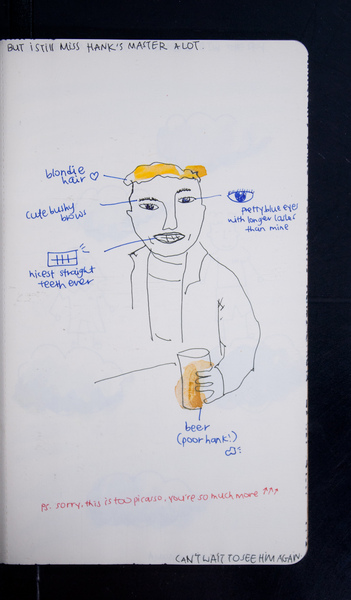 BUT I STILL MISS HANK'S MASTER A LOT.
blondie
hair
cute bushy
brows
pretty blue eyes
with longer lashes
than mine
nicest straight
teeth ever
beer
(poor hank!)
ps. sorry, this is too picasso, you're so much more
CAN'T WAIT TO SEE HIM AGAIN